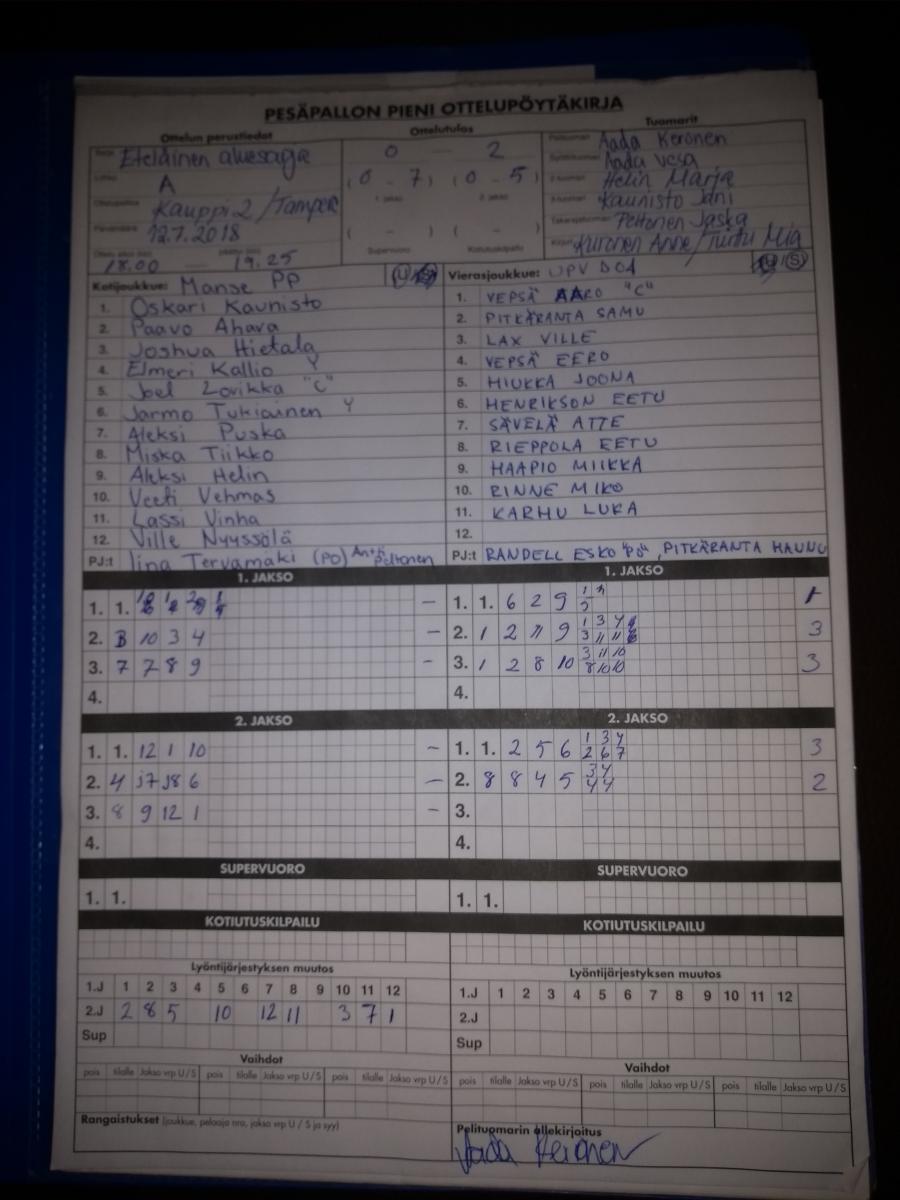 PESÄPALLON PIENI OTTELUPÖYTÄKIRJA
Ottelun perustiedot Ottelutulos Tuomarit
Eteläinen aluesarja 0 - 2 Aada Keronen
A (0 - 7) (0 - 5) Aada Vesa
1. jakso 2. jakso Helin Marja
Kauppi 2 / Tampere Kaunisto Jani
12.7.2018 ( - ) ( - ) Peltonen Jaska
18.00 19.25 Supervuoro Kotiutuskilpailu Anne / Mia
Kotijoukkue: Manse PP
1. Oskari Kaunisto
2. Paavo Ahava
3. Joshua Hietala
4. Elmeri Kallio Y
5. Joel Lovikka "C"
6. Jarmo Tukiainen Y
7. Aleksi Puska
8. Miska Tiikko
9. Aleksi Helin
10. Veeti Vehmas
11. Lassi Vinha
12. Ville Nyyssölä
PJ:t Iina Tervamäki (PO) Antti Peltonen
Vierasjoukkue: UPV
1. VEPSÄ AARO "C"
2. PITKÄRANTA SAMU
3. LAX VILLE
4. VEPSÄ EERO
5. HIUKKA JOONA
6. HENRIKSON EETU
7. SÄVELÄ ATTE
8. RIEPPOLA EETU
9. HAAPIO MIIKKA
10. RINNE MIKO
11. KARHU LUKA
12.
PJ:t RANDELL ESKO "PJ", PITKÄRANTA HANNU
1. JAKSO
1. 1. –
2. 10 3 4 –
3. 7 7 8 9 –
4.
1. JAKSO
1. 1. 6 2 9
2. 1 2 11 9 3
3. 1 2 8 10 3
4.
2. JAKSO
1. 1. 12 1 10 –
2. 4 j7 j8 6 –
3. 8 9 12 1 –
4.
2. JAKSO
1. 1. 2 5 6 1 3 4 3
2 6 7
2. 8 8 4 5 3 4 2
4 4
3.
4.
SUPERVUORO SUPERVUORO
1. 1. 1. 1.
KOTIUTUSKILPAILU KOTIUTUSKILPAILU
Lyöntijärjestyksen muutos
1.J 1 2 3 4 5 6 7 8 9 10 11 12
2.J 2 8 5 10 12 11 3 7 1
Sup
Lyöntijärjestyksen muutos
1.J 1 2 3 4 5 6 7 8 9 10 11 12
2.J
Sup
Vaihdot Vaihdot
pois tilalle Jakso vrp U / S pois tilalle Jakso vrp U / S pois tilalle Jakso vrp U / S
pois tilalle Jakso vrp U / S pois tilalle Jakso vrp U / S pois tilalle Jakso vrp U / S
Rangaistukset (joukkue, pelaaja nro, jakso vrp U / S ja syy)
Pelituomarin allekirjoitus
Aada Keronen